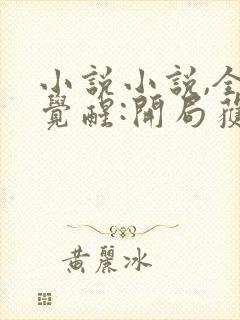 小說小說,全
覺醒:開局獲
黃麗冰